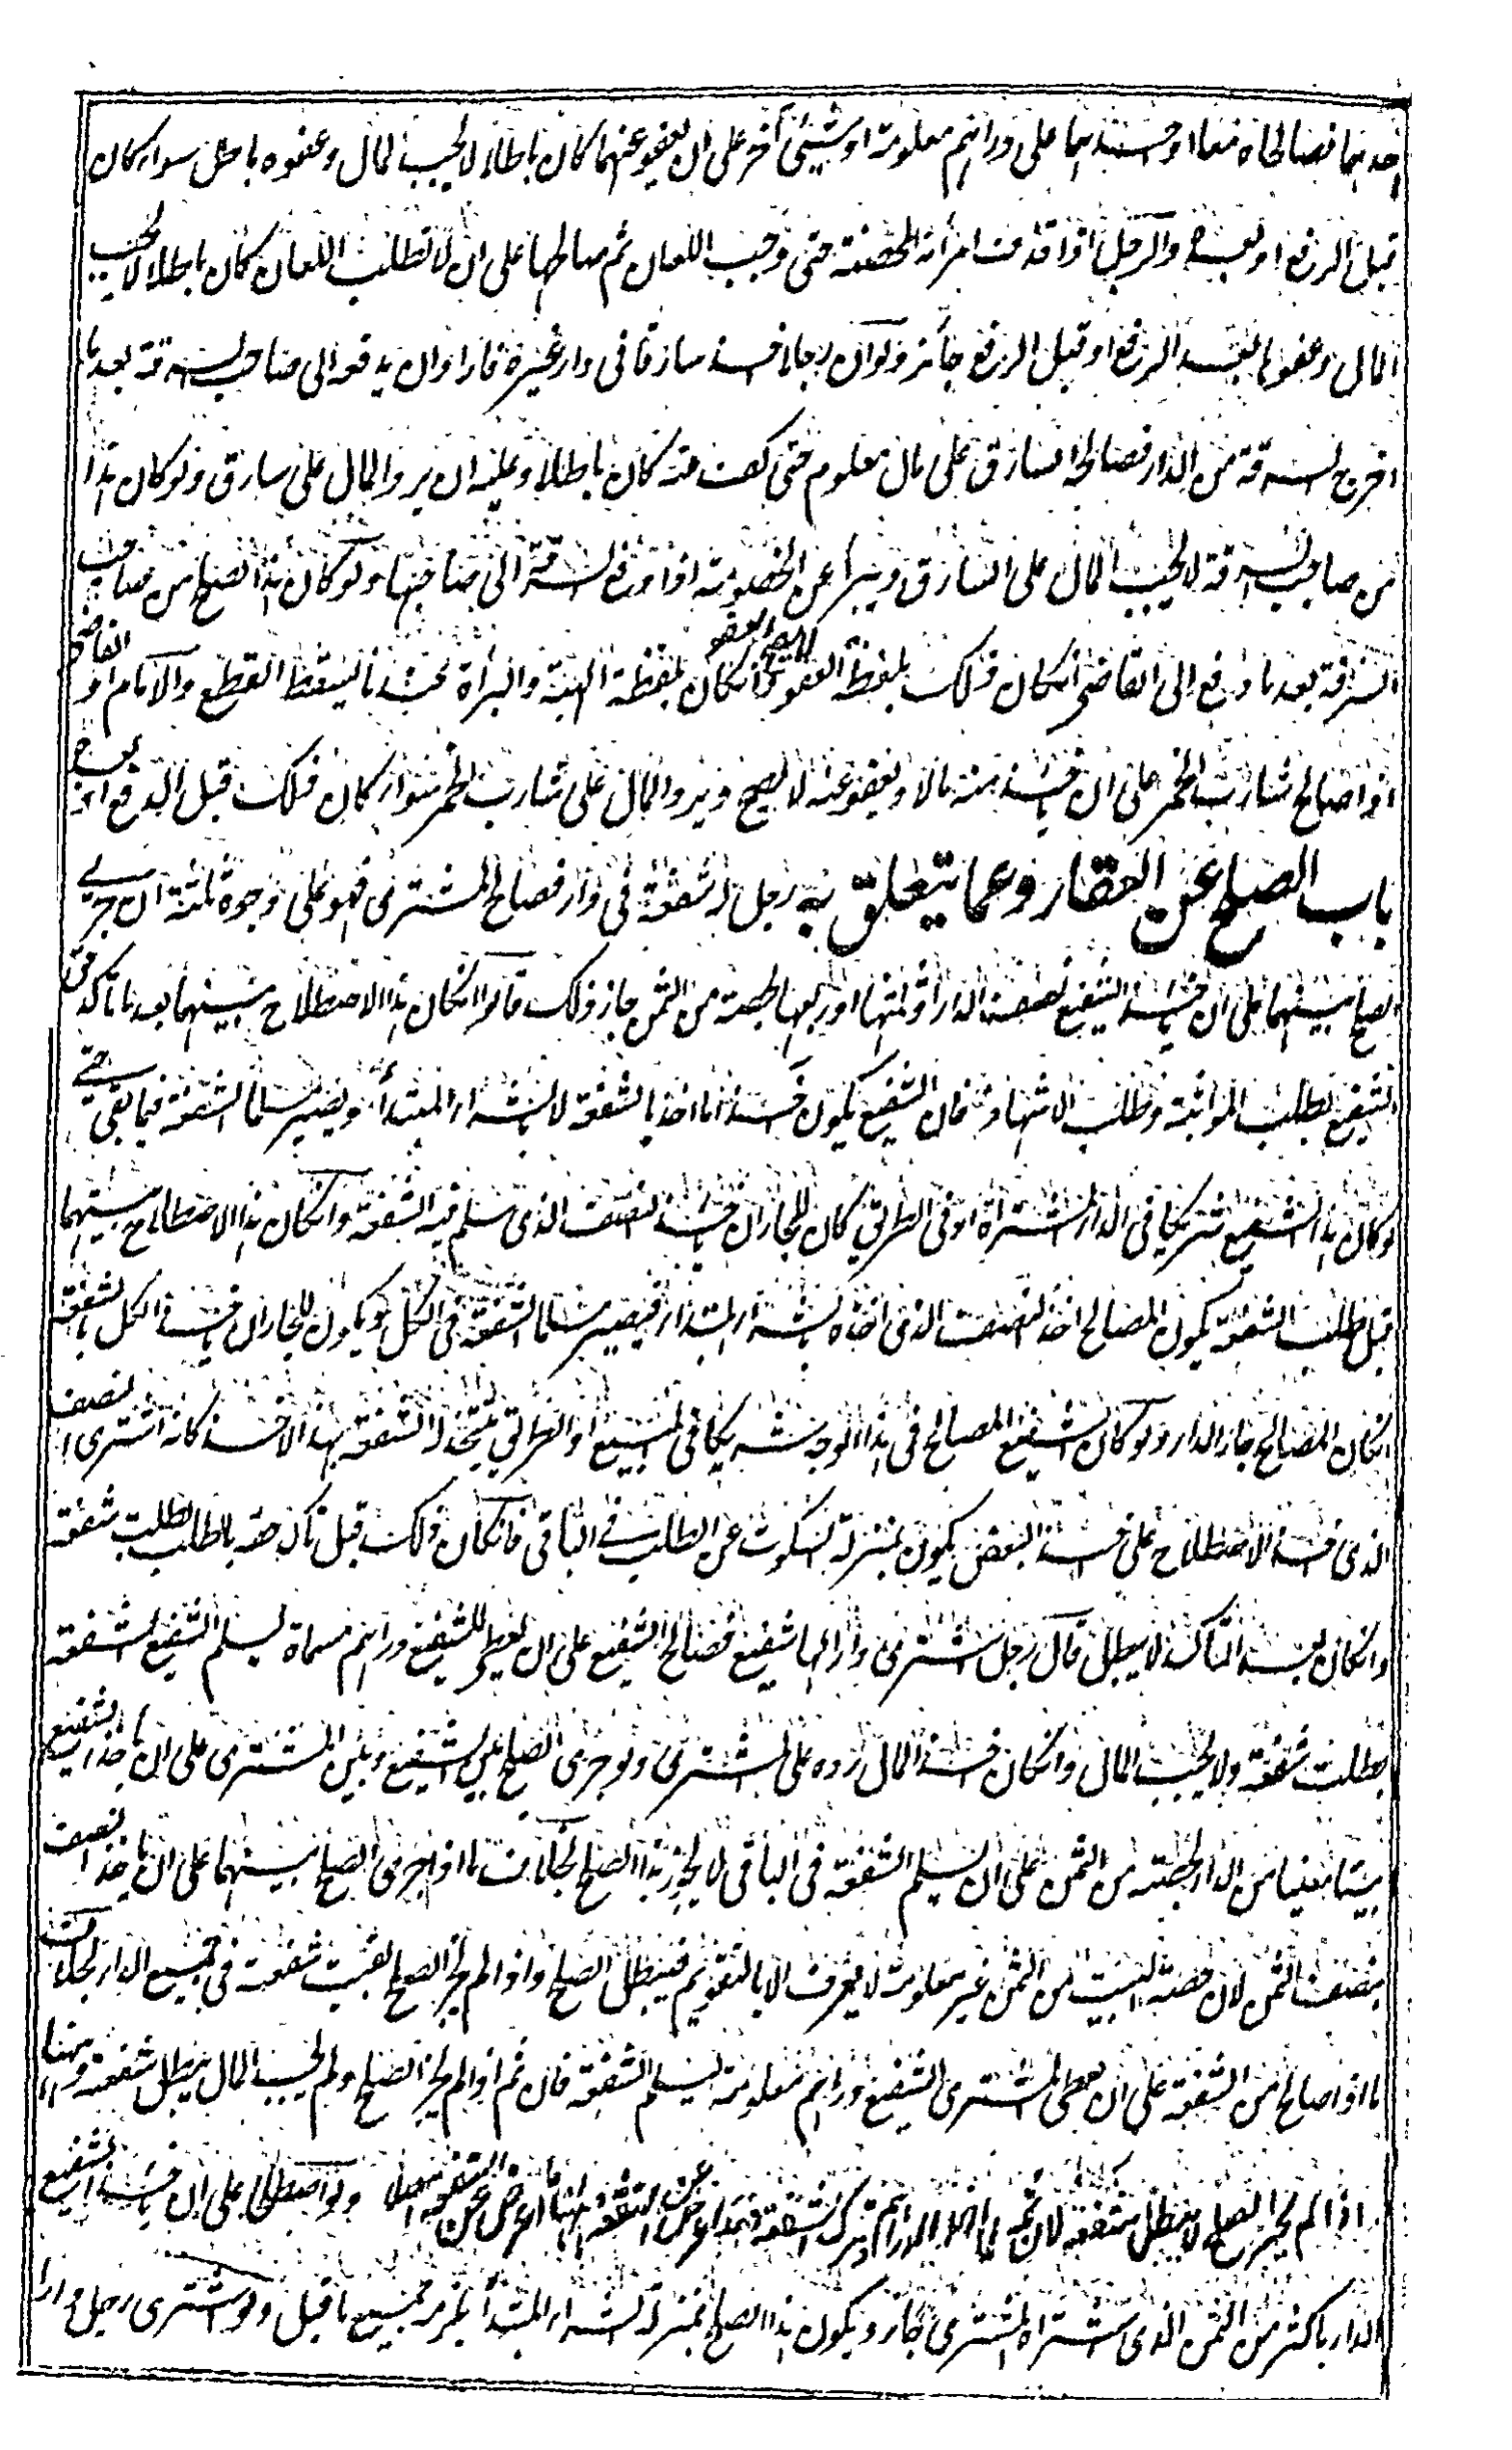 احدهما فصالحاه معا او احدهما على دراهم معلومة او شيئ آخر على ان يعفو عنهما كان باطلا لا يجب المال وعفوه باطل سواء كان
قبل الرفع او بعده والرجل اذا قذف امرأته المحصنة حتى وجب اللعان ثم صالحها على ان لا تطلب اللعان كان باطلا لا يجب
المال وعفوها بعد الرفع او قبل الرفع جائز ولو ان رجلا اخذ سارقا في دار غيره فاراد ان يدفعه الى صاحب السرقة بعد ما
اخرج السرقة من الدار فصالحه السارق على مال معلوم حتى كف عنه كان باطلا وعليه ان يرد المال على سارق ولو كان هذا
من صاحب السرقة لا يجب المال على السارق ويبرأ عن الخصومة اذا دفع السرقة الى صاحبها ولو كان هذا الصلح من صاحب
السرقة بعد ما رفع الى القاضي انكان ذلك بلفظة العفو لا يصح العفو وانكان بلفظة الهبة والبرأة عندنا يسقط القطع والامام او القاضي
اذا صالح شارب الخمر على ان ياخذ منه مالا ويعفو عنه لا يصح ويرد المال على شارب الخمر سواء كان ذلك قبل الدفع او بعده
باب الصلح عن العقار وعما يتعلق به رجل له شفعة في دار فصالح المشتري فهو على وجوه ثلثة ان جرى
الصلح بينهما على ان ياخذ الشفيع نصف الدار او ثلثها او ربعها بحصته من الثمن جاز ذلك قالوا انكان هذا الاصطلاح بينهما بعد ما تأكد حق
الشفيع بطلب المواثبة وطلب الاشهاد فان الشفيع يكون آخذا ما اخذ بالشفعة لا بشراء المبتدأ ويصير مسلما الشفعة فيما بقي حتى
لو كان هذا الشفيع شريكا في الدار المشتراة او في الطريق كان للجار ان ياخذ النصف الذي سلم فيه الشفعة وانكان هذا الاصطلاح بينهما
قبل طلب الشفعة يكون المصالح اخذ النصف الذي اخذه بشراء المبتدأ فيصير مسلما الشفعة في الكل ويكون للجار ان ياخذ الكل بالشفعة
انكان المصالح جار الدار ولو كان الشفيع المصالح في هذا الوجه شريكا في المبيع او الطريق يتجدد له الشفعة بهذا الاخذ كانه اشترى النصف
الذي اخذ الاصطلاح على اخذ البعض يكون بمنزلة السكوت عن الطلب في الباقي فانكان ذلك قبل تأكد حقه بالطلب بطلت شفعته
وانكان بعد التأكد لا يبطل قال رجل اشترى دارا لها شفيع فصالح الشفيع على ان يعطي للشفيع دراهم مسماة ليسلم الشفيع الشفعة
بطلت شفعته ولا يجب المال وانكان اخذ المال رده على المشتري ولو جرى الصلح بين الشفيع وبين المشتري على ان ياخذ الشفيع
بيتا معينا من الدار بحصته من الثمن على ان يسلم الشفعة في الباقي لا يجوز هذا الصلح بخلاف ما اذا جرى الصلح بينهما على ان ياخذ النصف
بنصف الثمن لان حصة البيت من الثمن غير معلومة لا يعرف الا بالتقويم فيبطل الصلح واذا لم يجز الصلح بقيت شفعته في جميع الدار بخلاف
ما اذا صالح من الشفعة على ان يعطي المشتري الشفيع دراهم معلومة ليسلم الشفعة فان ثم اذا لم يجز الصلح ولم يجب المال يبطل شفعته وههنا
اذا لم يجز الصلح لا يبطل شفعته لان ثمه لما اخذ الدراهم بترك الشفعة فقد اعرض عن الشفعة اما ههنا ما اعرض عن الشفعة اصلا ولو اصطلحا على ان ياخذ الشفيع
الدار باكثر من الثمن الذي اشتراه المشتري جاز ويكون هذا الصلح بمنزلة الشراء المبتدأ يلزمه جميع ما قبل ولو اشترى رجل دارا